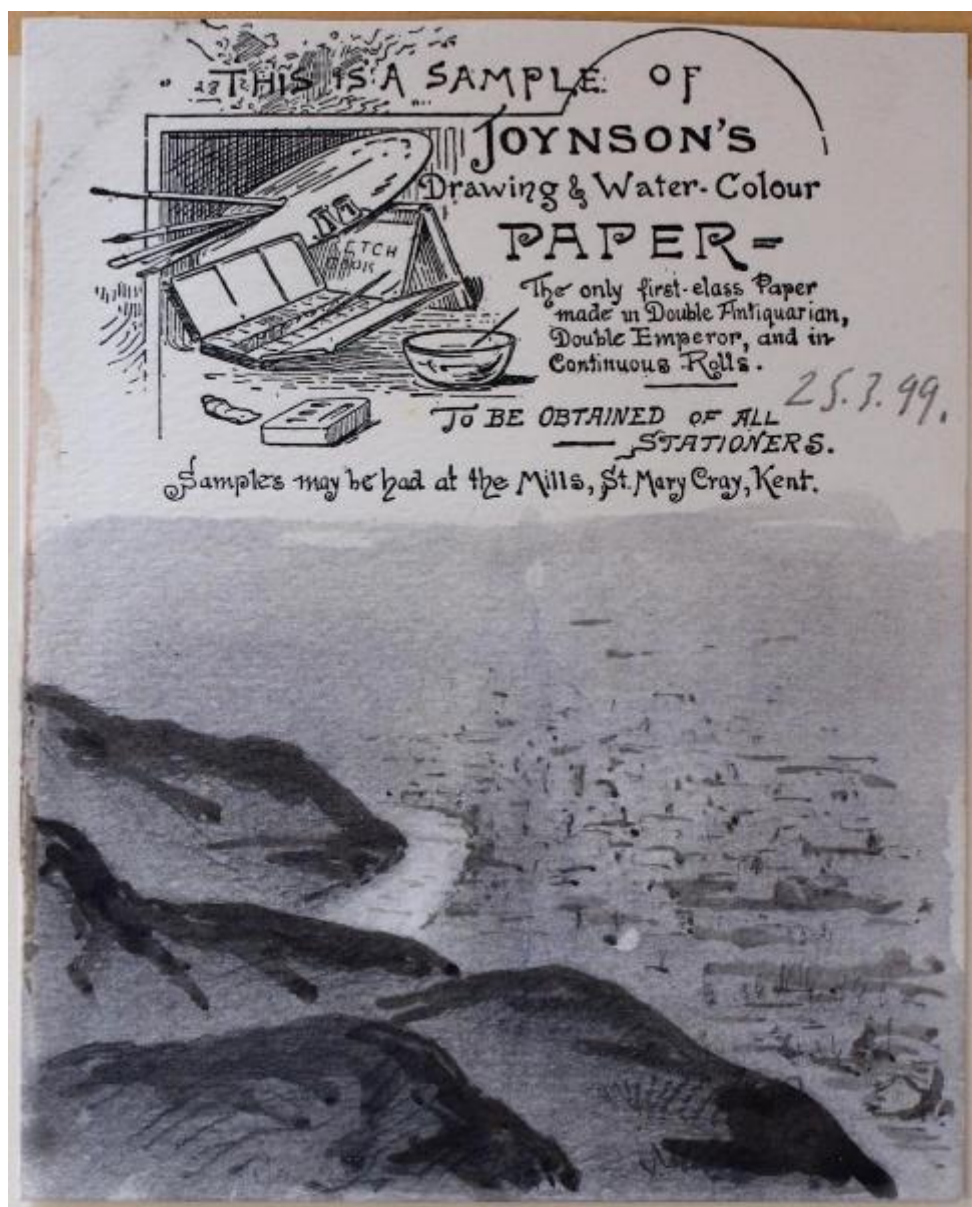 THIS IS A SAMPLE OF
JOYNSON'S
Drawing & Water-Colour
PAPER-
ETCH
BOOK
The only first-class Paper
made in Double Antiquarian,
Double Emperor, and in
Continuous Rolls.
25.3.99.
TO BE OBTAINED OF ALL
STATIONERS.
Samples may be had at the Mills, St. Mary Cray, Kent.